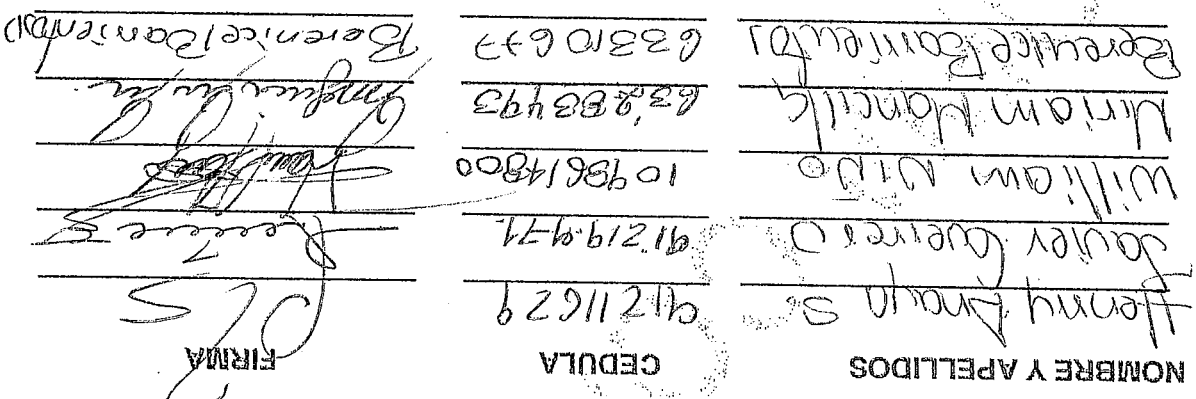 NOMBRE Y APELLIDOS CEDULA FIRMA
Henny Anaya S. 91211629
Javier Guerrero 91219.971
William Niño 1098614800
Miriam Mancilla 63,283493
Berenice Barrientos 63310677 Berenice Barrientos